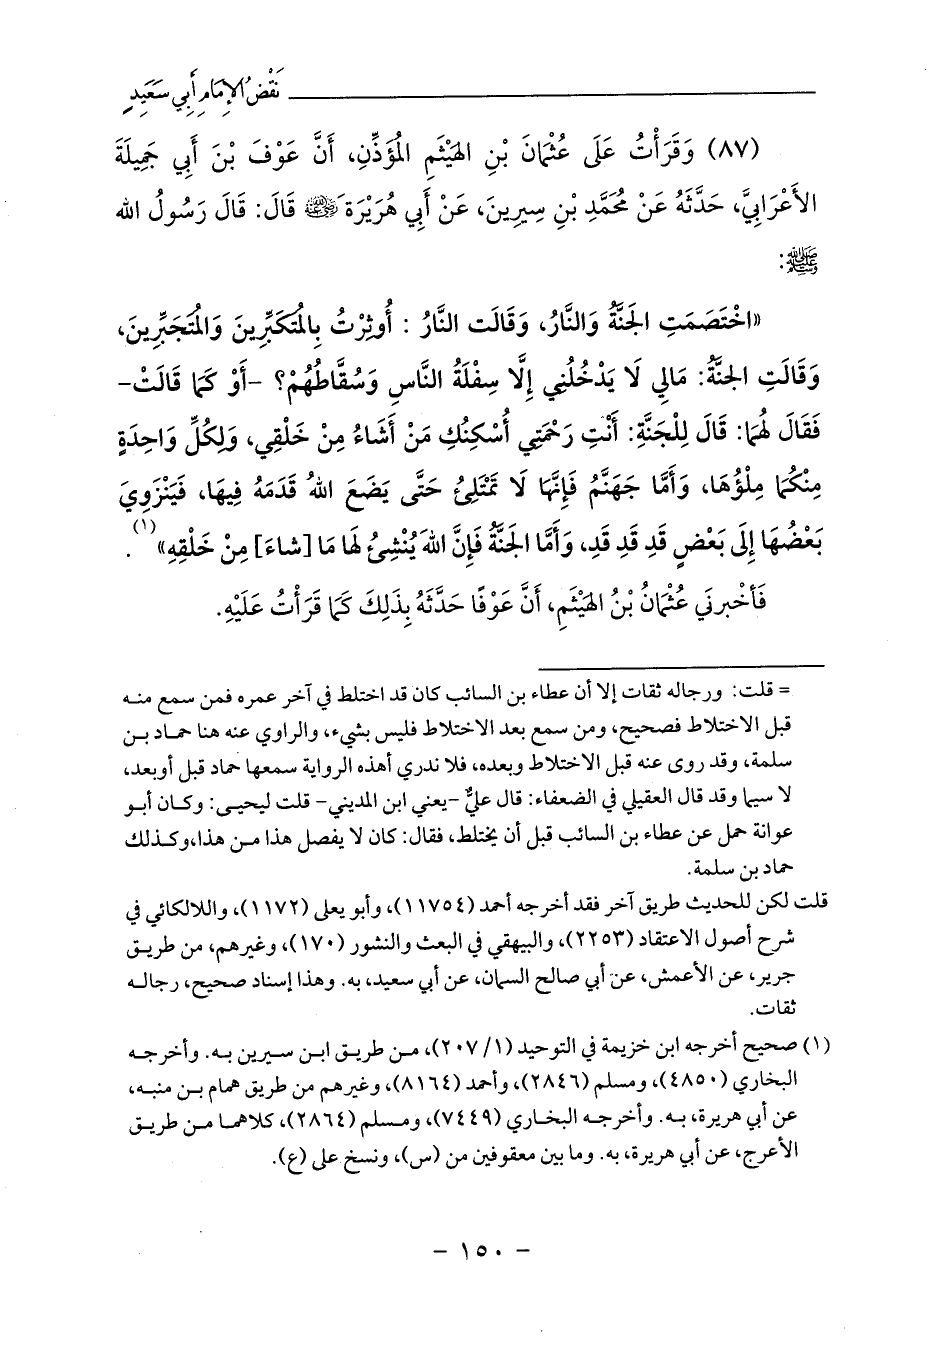 نَقْضُ الإِمَامِ أَبِي سَعِيدٍ
(٨٧) وَقَرَأْتُ عَلَى عُثْمَانَ بْنِ الهَيْثَمِ المُؤَذِّنِ، أَنَّ عَوْفَ بْنَ أَبِي جَمِيلَةَ
الأَعْرَابِيَّ، حَدَّثَهُ عَنْ مُحَمَّدِ بْنِ سِيرِينَ، عَنْ أَبِي هُرَيْرَةَ رضي الله عنه قَالَ: قَالَ رَسُولُ الله
ﷺ:
«اخْتَصَمَتِ الجَنَّةُ وَالنَّارُ، وَقَالَت النَّارُ : أُوثِرْتُ بِالمُتَكَبِّرِينَ وَالمُتَجَبِّرِينَ،
وَقَالَتِ الجَنَّةُ: مَالِي لَا يَدْخُلُنِي إِلَّا سِفْلَةُ النَّاسِ وَسُقَّاطُهُمْ؟ -أَوْ كَمَا قَالَتْ-
فَقَالَ لَهُمَا: قَالَ لِلْجَنَّةِ: أَنْتِ رَحْمَتِي أُسْكِنُكِ مَنْ أَشَاءُ مِنْ خَلْقِي، وَلِكُلِّ وَاحِدَةٍ
مِنْكُمَا مِلْؤُهَا، وَأَمَّا جَهَنَّمُ فَإِنَّهَا لَا تَمْتَلِئُ حَتَّى يَضَعَ اللهُ قَدَمَهُ فِيهَا، فَيَنْزَوِيَ
بَعْضُهَا إِلَى بَعْضٍ قَدِ قَدِ قَدِ، وَأَمَّا الجَنَّةُ فَإِنَّ اللهَ يُنْشِئُ لَهَا مَا [شاءَ] مِنْ خَلْقِهِ»(١).
فَأَخْبرنَي عُثْمَانُ بْنُ الهَيْثَمِ، أَنَّ عَوْفًا حَدَّثَهُ بِذَلِكَ كَمَا قَرَأْتُ عَلَيْهِ.
= قلت: ورجاله ثقات إلا أن عطاء بن السائب كان قد اختلط في آخر عمره فمن سمع منه
قبل الاختلاط فصحيح، ومن سمع بعد الاختلاط فليس بشيء، والراوي عنه هنا حماد بن
سلمة، وقد روى عنه قبل الاختلاط وبعده، فلا ندري أهذه الرواية سمعها حماد قبل أوبعد،
لا سيما وقد قال العقيلي في الضعفاء: قال عليٌّ -يعني ابن المديني- قلت ليحيى: وكان أبو
عوانة حمل عن عطاء بن السائب قبل أن يختلط، فقال: كان لا يفصل هذا من هذا،وكذلك
حماد بن سلمة.
قلت لكن للحديث طريق آخر فقد أخرجه أحمد (١١٧٥٤)، وأبو يعلى (١١٧٢)، واللالكائي في
شرح أصول الاعتقاد (٢٢٥٣)، والبيهقي في البعث والنشور (١٧٠)، وغيرهم، من طريق
جرير، عن الأعمش، عن أبي صالح السمان، عن أبي سعيد، به. وهذا إسناد صحيح، رجاله
ثقات.
(١) صحيح أخرجه ابن خزيمة في التوحيد (١/ ٢٠٧)، من طريق ابن سيرين به. وأخرجه
البخاري (٤٨٥٠)، ومسلم (٢٨٤٦)، وأحمد (٨١٦٤)، وغيرهم من طريق همام بن منبه،
عن أبي هريرة، به. وأخرجه البخاري (٧٤٤٩)، ومسلم (٢٨٦٤)، كلاهما من طريق
الأعرج، عن أبي هريرة، به. وما بين معقوفين من (س)، ونسخ على (ع).
- ١٥٠ -